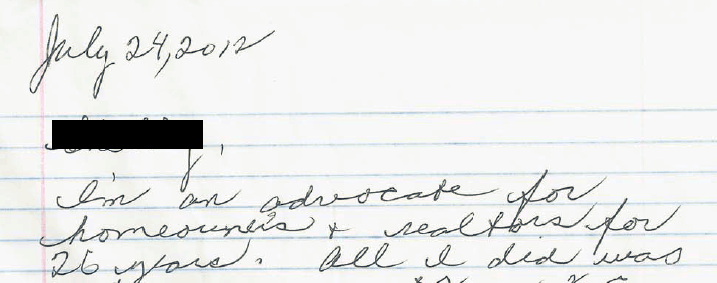 July 24, 2012
I'm an advocate for
homeowners + realtors for
26 years. All I did was